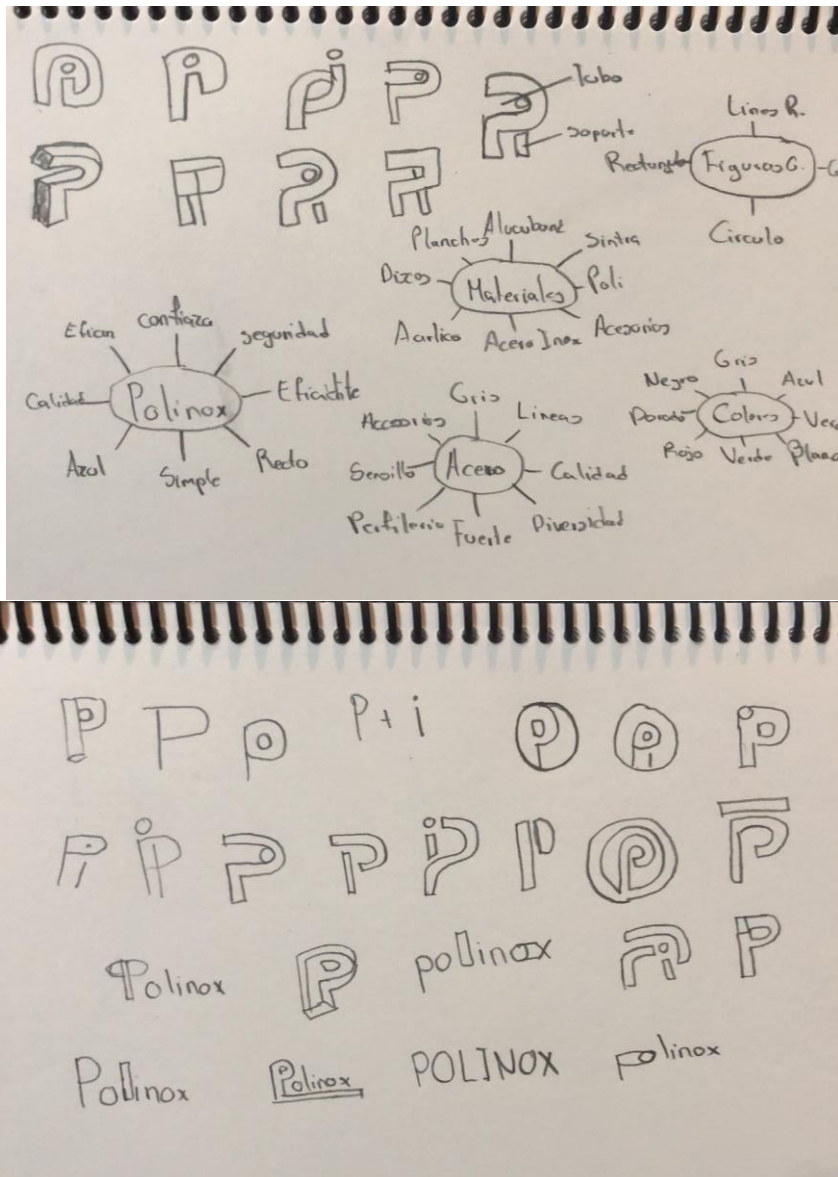 tubo
soporte
Lineas R.
Rectangulo Figuras G.
Circulo
Planchas Alucubond Sintra
Dizos Materiales Poli
Acrlico Acero Inox Acesorios
Eficen confiaza seguridad
Calidad Polinox
Azul Simple Recto
Gris
Accesorios Lineas
Sensillo Acero Calidad
Perfileria Fuerte Diversidad
Gris
Negro Azul
Dorado Colores
Rojo Verde
P + i
Polinox
polinox
Polinox
Polinox
POLINOX
polinox